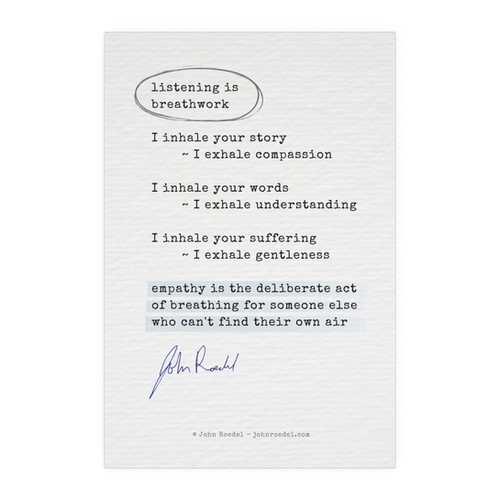 listening is
breathwork
I inhale your story
~ I exhale compassion
I inhale your words
~ I exhale understanding
I inhale your suffering
~ I exhale gentleness
empathy is the deliberate act
of breathing for someone else
who can't find their own air
John Roedel
© John Roedel - johnroedel.com